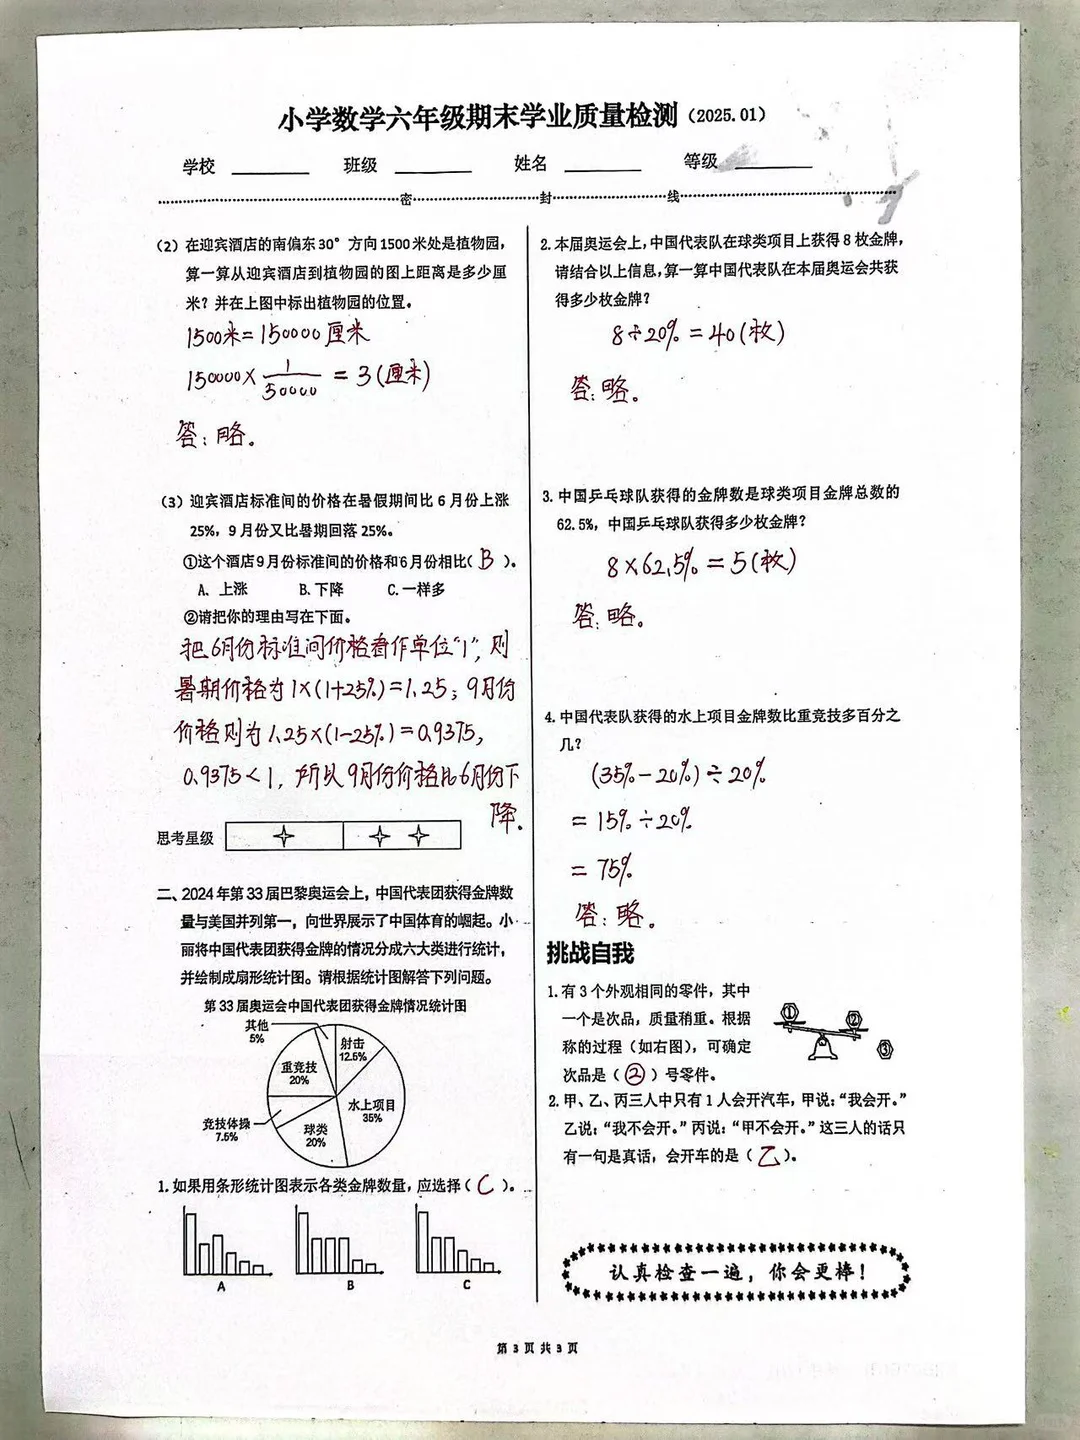 小学数学六年级期末学业质量检测（2025.01）
学校 班级 姓名 等级
密 封 线
（2）在迎宾酒店的南偏东30°方向1500米处是植物园，
算一算从迎宾酒店到植物园的图上距离是多少厘
米？并在上图中标出植物园的位置。
1500米=150000厘米
150000×1/50000=3(厘米)
答：略。
（3）迎宾酒店标准间的价格在暑假期间比6月份上涨
25%，9月份又比暑期回落25%。
①这个酒店9月份标准间的价格和6月份相比( B )。
A、上涨 B.下降 C.一样多
②请把你的理由写在下面。
把6月份标准间价格看作单位“1”，则
暑期价格为1×(1+25%)=1.25；9月份
价格则为1.25×(1-25%)=0.9375，
0.9375<1，所以9月份价格比6月份下
降。
思考星级
二、2024年第33届巴黎奥运会上，中国代表团获得金牌数
量与美国并列第一，向世界展示了中国体育的崛起。小
丽将中国代表团获得金牌的情况分成六大类进行统计，
并绘制成扇形统计图。请根据统计图解答下列问题。
第33届奥运会中国代表团获得金牌情况统计图
其他
5%
射击
12.5%
重竞技
20%
水上项目
35%
竞技体操
7.5%
球类
20%
1.如果用条形统计图表示各类金牌数量，应选择( C )。
A B C
2.本届奥运会上，中国代表队在球类项目上获得8枚金牌，
请结合以上信息，算一算中国代表队在本届奥运会共获
得多少枚金牌？
8÷20%=40(枚)
答：略。
3.中国乒乓球队获得的金牌数是球类项目金牌总数的
62.5%，中国乒乓球队获得多少枚金牌？
8×62.5%=5(枚)
答：略。
4.中国代表队获得的水上项目金牌数比重竞技多百分之
几？
(35%-20%)÷20%
=15%÷20%
=75%
答：略。
挑战自我
1.有3个外观相同的零件，其中
一个是次品，质量稍重。根据
称的过程（如右图），可确定
次品是（②）号零件。
① ② ③
2.甲、乙、丙三人中只有1人会开汽车，甲说：“我会开。”
乙说：“我不会开。”丙说：“甲不会开。”这三人的话只
有一句是真话，会开车的是（乙）。
认真检查一遍，你会更棒！
第3页共3页